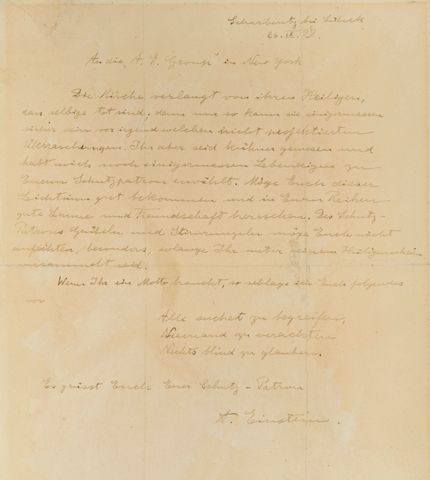 Scharbeutz bei Lübeck
26.IX.28.
An die „A. E. Group" in New York
Die Kirche verlangt von ihren Heiligen,
dass selbige tot sind, denn nur so kann sie einigermassen
sicher sein vor irgend welchen
Überraschungen. Ihr aber seid kühner gewesen und
habt mich noch einigermassen Lebendigen zu
Euerm Schutzpatron erwählt. Möge Euch dieser
Leichtsinn gut bekommen und in Euren Reihen
gute Laune und Freundschaft herrschen. Des Schutz-
Patrons Grübeln und möge Euch nicht
anfechten, besonders, solange Ihr unter seinem Heiligenschein
versammelt seid.
Wenn Ihr ein Motto braucht, so schlage ich Euch folgendes
vor
Alle suchet zu begreifen,
Niemand zu verachten
Nichts blind zu glauben.
Es grüsst Euch Euer Schutz-Patron
A. Einstein.